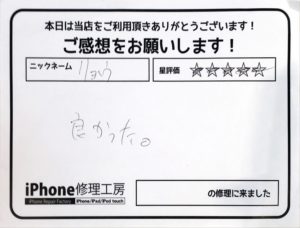 本日は当店をご利用頂きありがとうございます！
ご感想をお願いします！
ニックネーム リョウ 星評価 ☆☆☆☆☆
良かった。
iPhone修理工房
iPhone Repair Factory iPhone/iPad/iPod touch
の修理に来ました